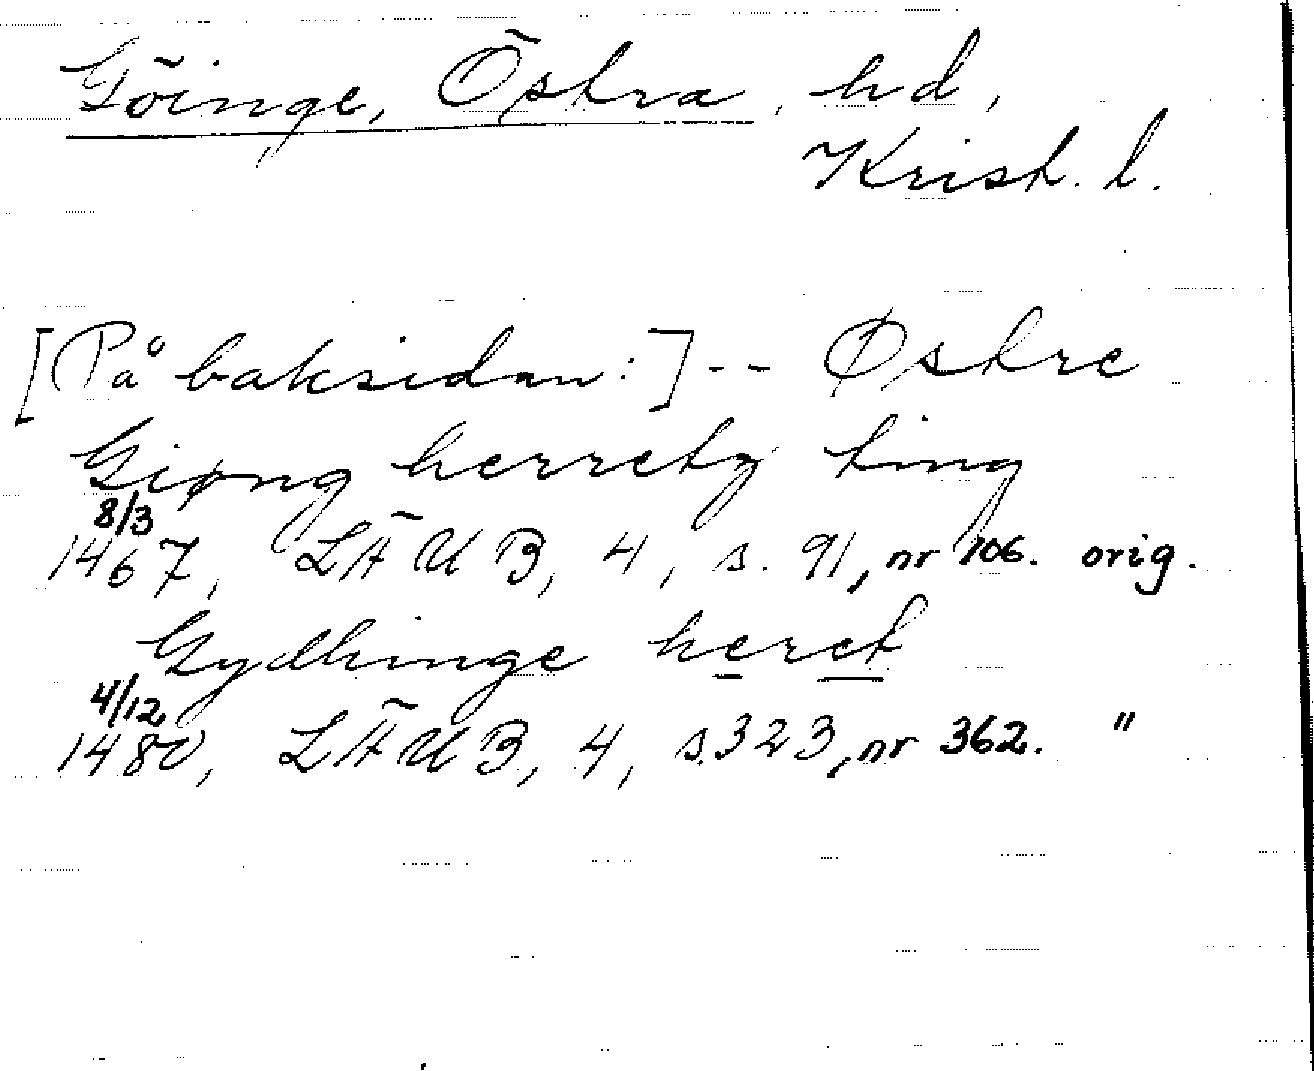 Göinge, Östra, hd,
Krist. l.
[På baksidan:] -- Østre
Giøng herretz ting
8/3
1467, LÄUB, 4, s. 91, nr 106. orig.
Gydhinge heret
4/12
1480, LÄUB, 4, s. 323, nr 362. "